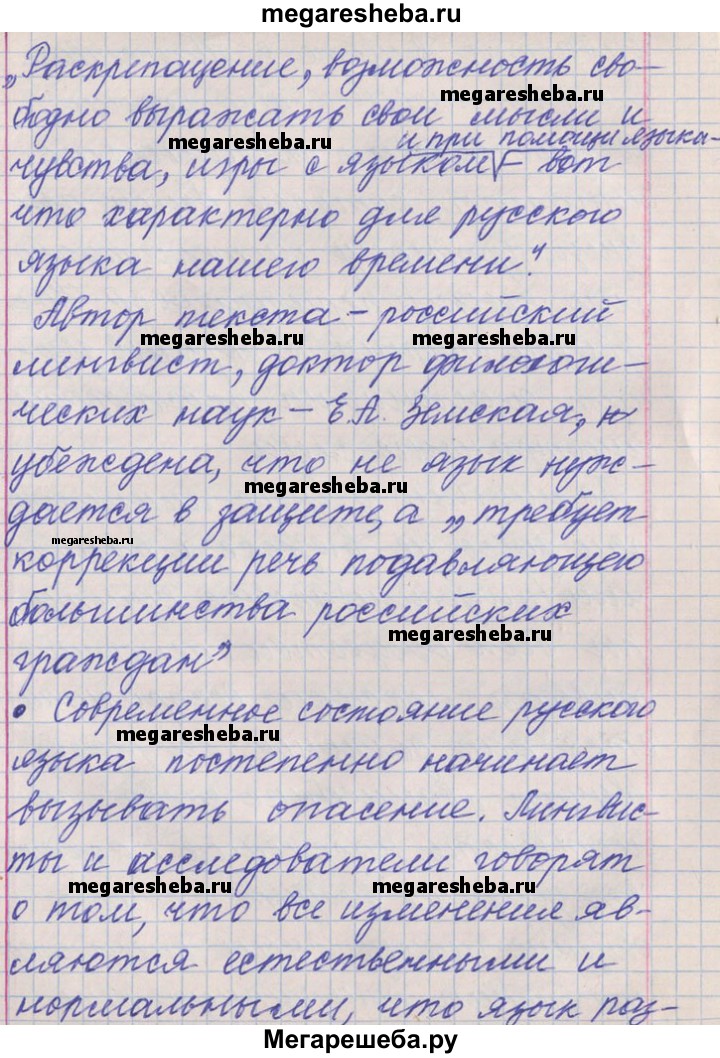 megaresheba.ru
„Раскрепощение, возможность сво-
megaresheba.ru
бодно выражать свои мысли и
megaresheba.ru
и при помощи языка-
чувства, игры с языком √ - вот
что характерно для русского
языка нашего времени."
Автор текста - российский
megaresheba.ru megaresheba.ru
лингвист, доктор филологи-
ческих наук - Е.А. Земская,
убеждена, что не язык нуж-
megaresheba.ru
дается в защите, а „требует
megaresheba.ru
коррекции речь подавляющего
большинства российских
megaresheba.ru
граждан"
• Современное состояние русского
megaresheba.ru
языка постепенно начинает
вызывать опасение. Лингвис-
ты и исследователи говорят
megaresheba.ru megaresheba.ru
о том, что все изменения яв-
ляются естественными и
нормальными, что язык раз-
Мегарешеба.ру